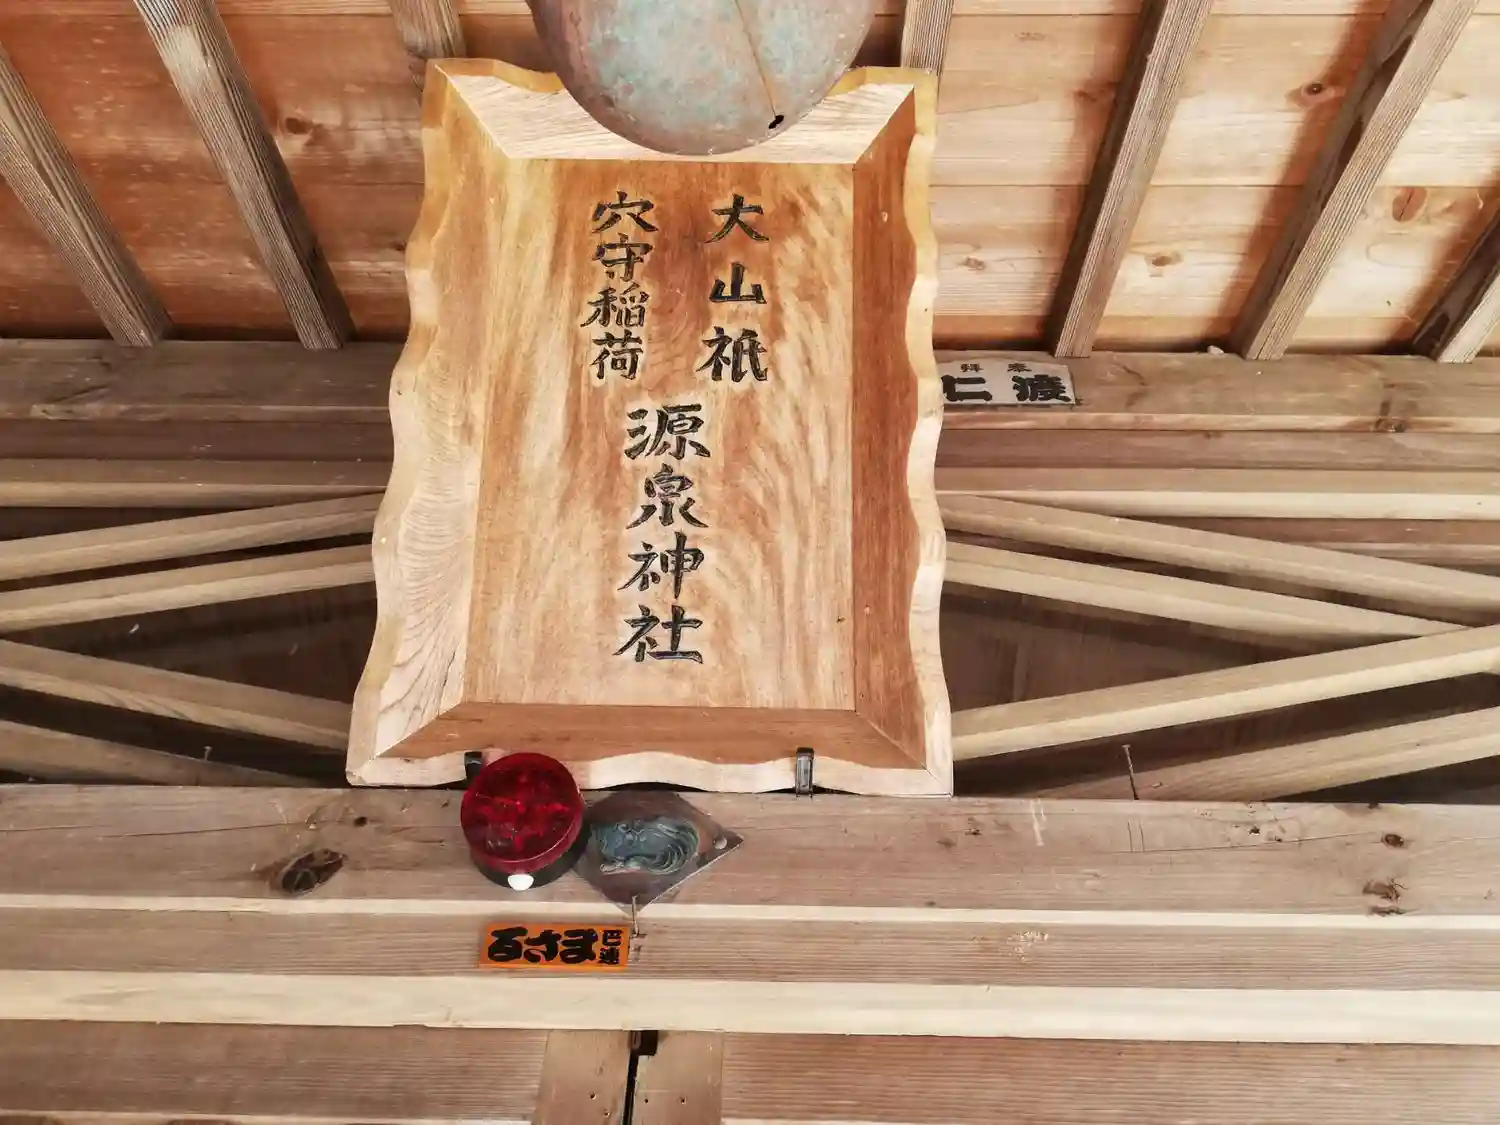 大山祇
穴守稲荷
源泉神社
奉拜
仁渡
百さま
巴連